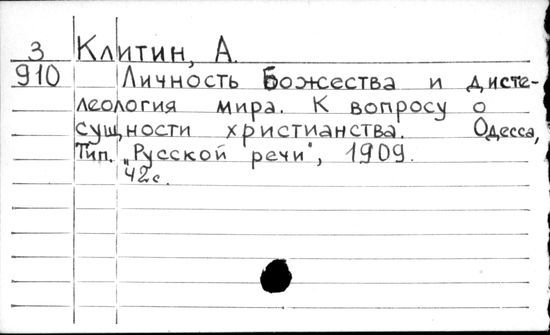 3 Клитин, А.
910 Личность Божества и дисте-
леология мира. К вопросу о
сущности христианства. Одесса,
Тип. „Русской речи", 1909.
42с.